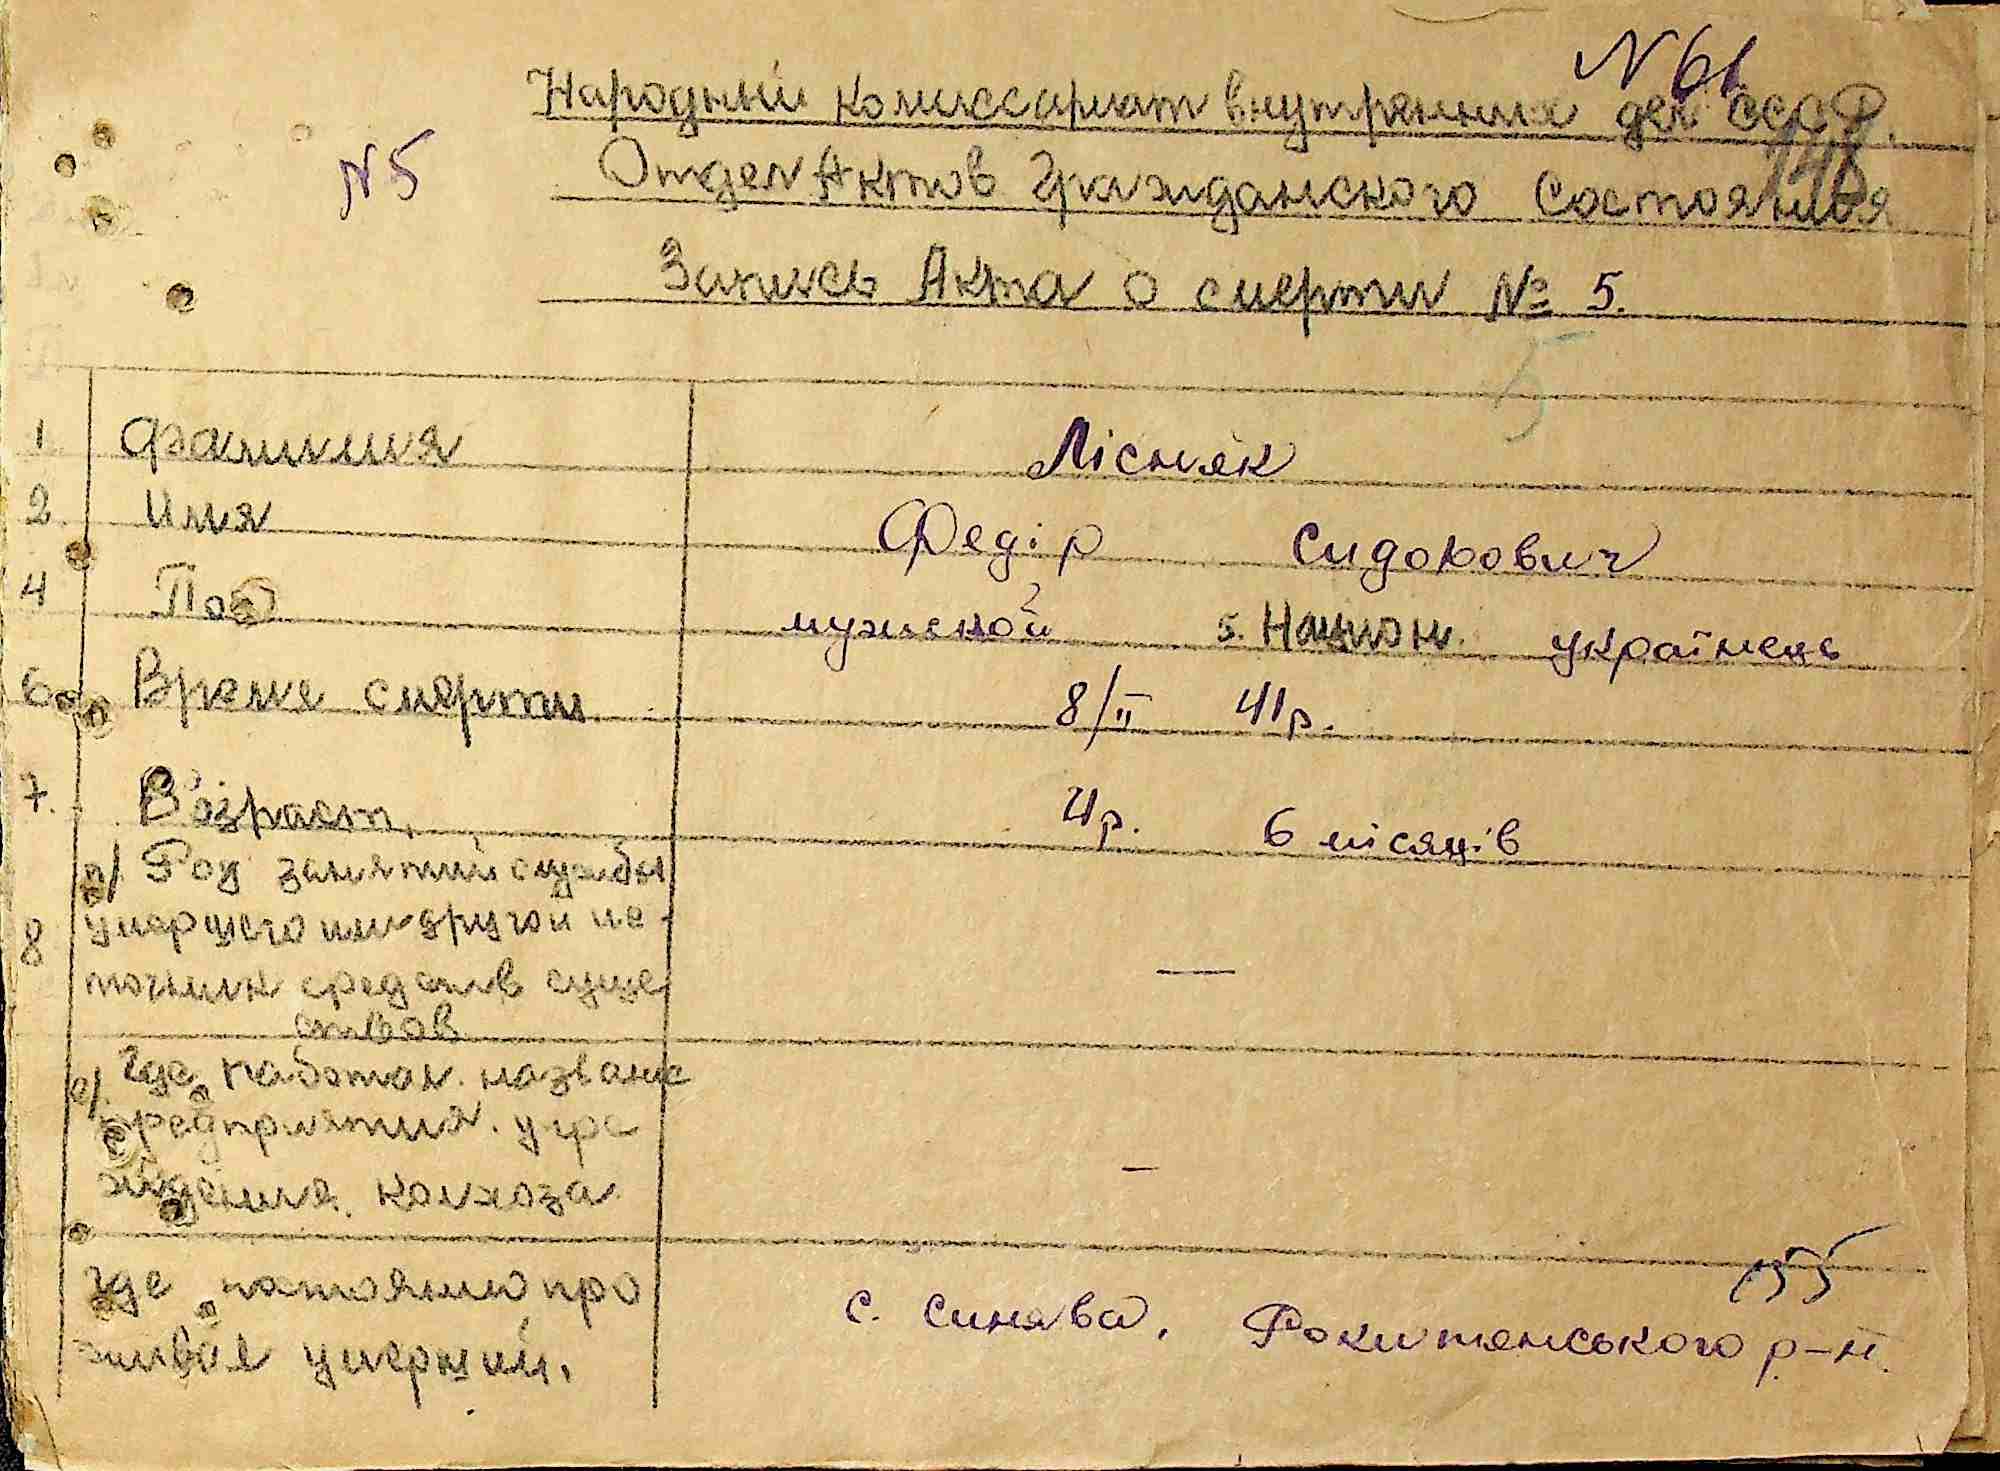 N 61
Народный комиссариат внутренних дел СССР.
N 5
Отдел Актов Гражданского Состояния
Запись Акта о смерти № 5.
5
1. Фамилия Лісняк
2. Имя Федір Сидорович
4 Пол мужской 5. Национ. українець
6 Время смерти 8/II 41р.
7. Возраст. 4р. 6 місяців
а/ Род занятий службы
8 умершего или другой ис-
точник средств суще
ствов —
Где работал. название
предприятия. учре
ждения. колхоза —
155
Где постоянно про
живал умерший. с. Синява, Рокитянського р-н.